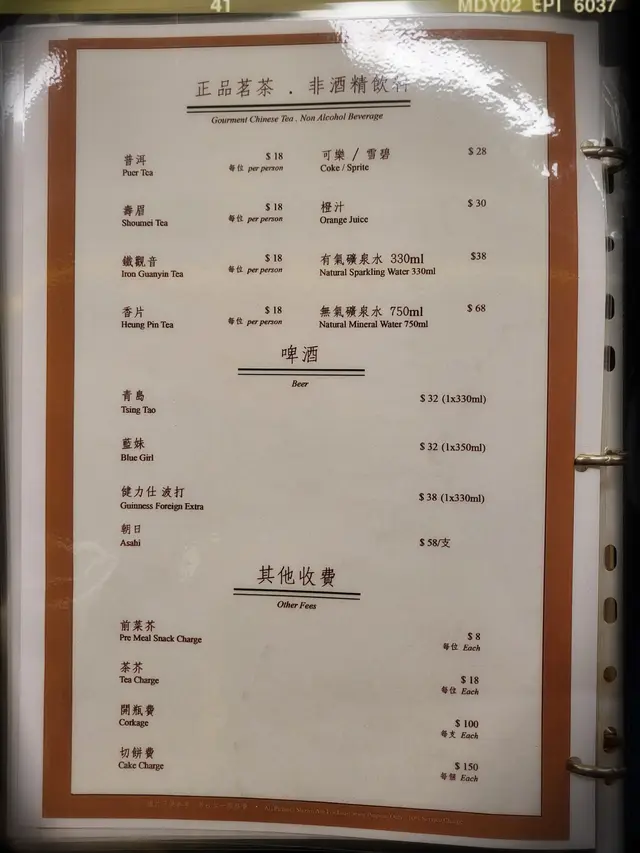 41
MDY02 EPI 6037
正品茗茶 . 非酒精飲料
Gourment Chinese Tea , Non Alcohol Beverage
普洱 $ 18
Puer Tea 每位 per person
可樂 / 雪碧 $ 28
Coke / Sprite
壽眉 $ 18
Shoumei Tea 每位 per person
橙汁 $ 30
Orange Juice
鐵觀音 $ 18
Iron Guanyin Tea 每位 per person
有氣礦泉水 330ml $38
Natural Sparkling Water 330ml
香片 $ 18
Heung Pin Tea 每位 per person
無氣礦泉水 750ml $ 68
Natural Mineral Water 750ml
啤酒
Beer
青島 $ 32 (1x330ml)
Tsing Tao
藍妹 $ 32 (1x350ml)
Blue Girl
健力仕 波打 $ 38 (1x330ml)
Guinness Foreign Extra
朝日 $ 58/支
Asahi
其他收費
Other Fees
前菜芥 $ 8
Pre Meal Snack Charge 每位 Each
茶芥 $ 18
Tea Charge 每位 Each
開瓶費 $ 100
Corkage 每支 Each
切餅費 $ 150
Cake Charge 每個 Each